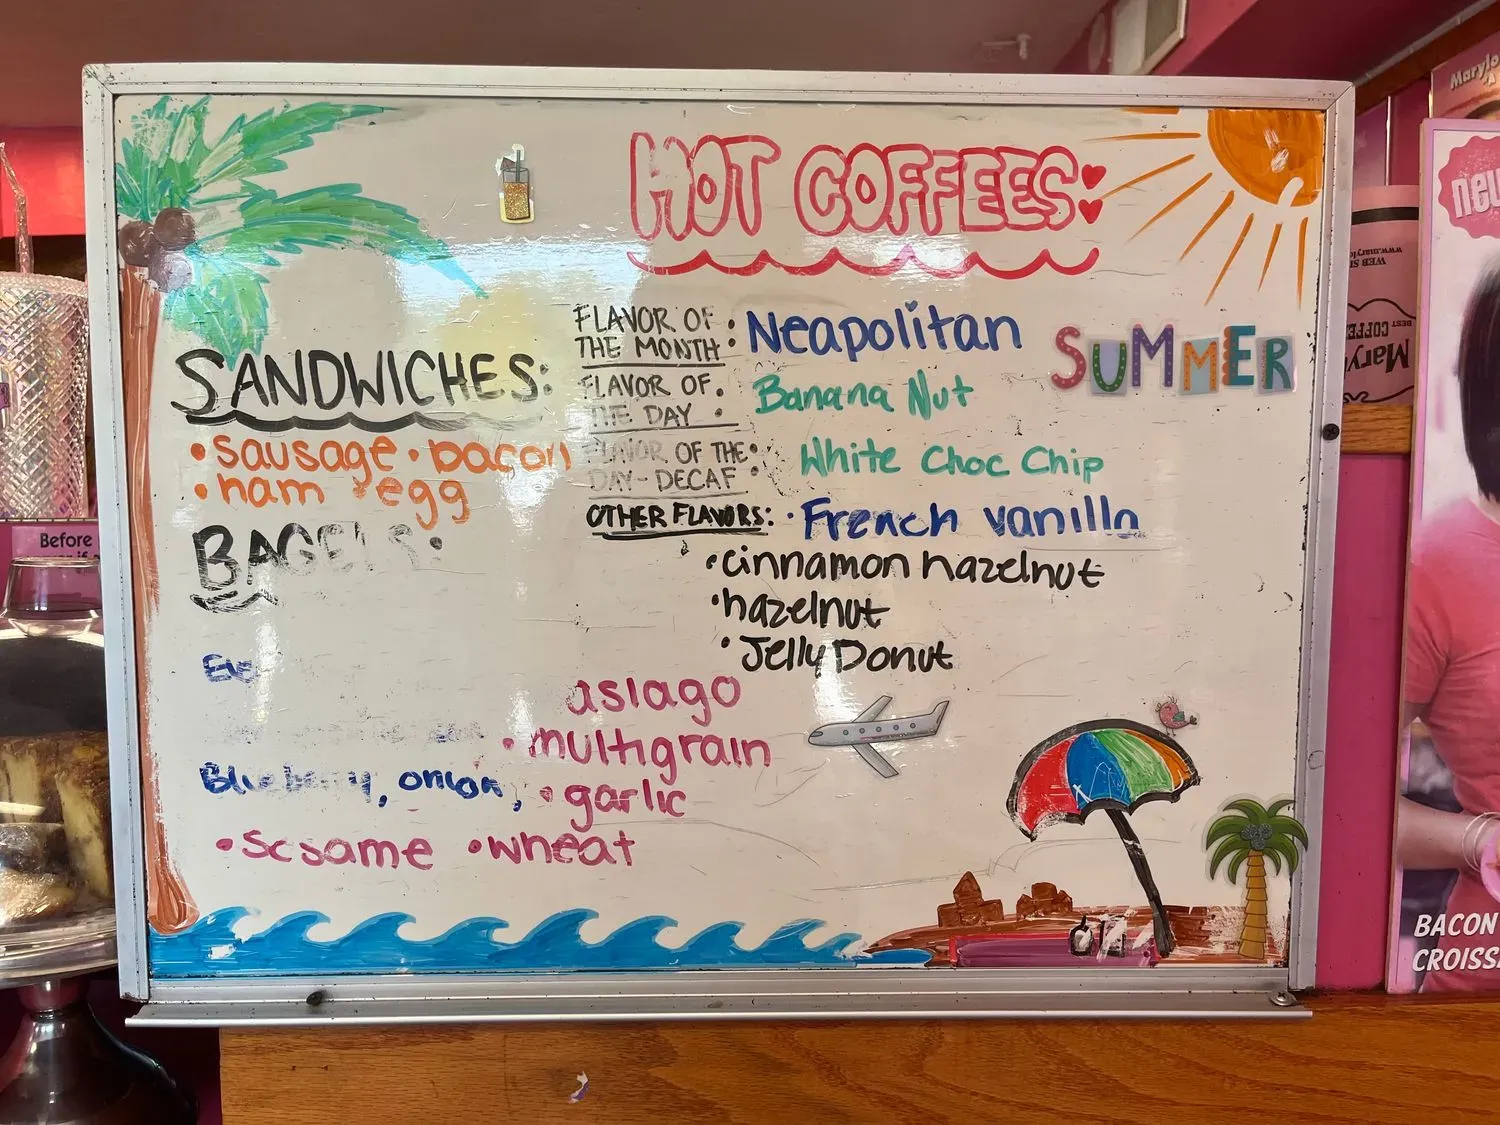 HOT COFFEES:
SUMMER
FLAVOR OF THE MONTH: Neapolitan
FLAVOR OF THE DAY: Banana Nut
FLAVOR OF THE DAY-DECAF: White Choc Chip
OTHER FLAVORS: • French vanilla
• cinnamon hazelnut
• hazelnut
• Jelly Donut
SANDWICHES:
• sausage • bacon
• ham • egg
BAGELS:
asiago
• multigrain
Blueberry, onion, • garlic
• sesame • wheat
Before
new
Marylo
WEB SI
www.marylo
BEST COFFEE
Marylo
BACON
CROISS